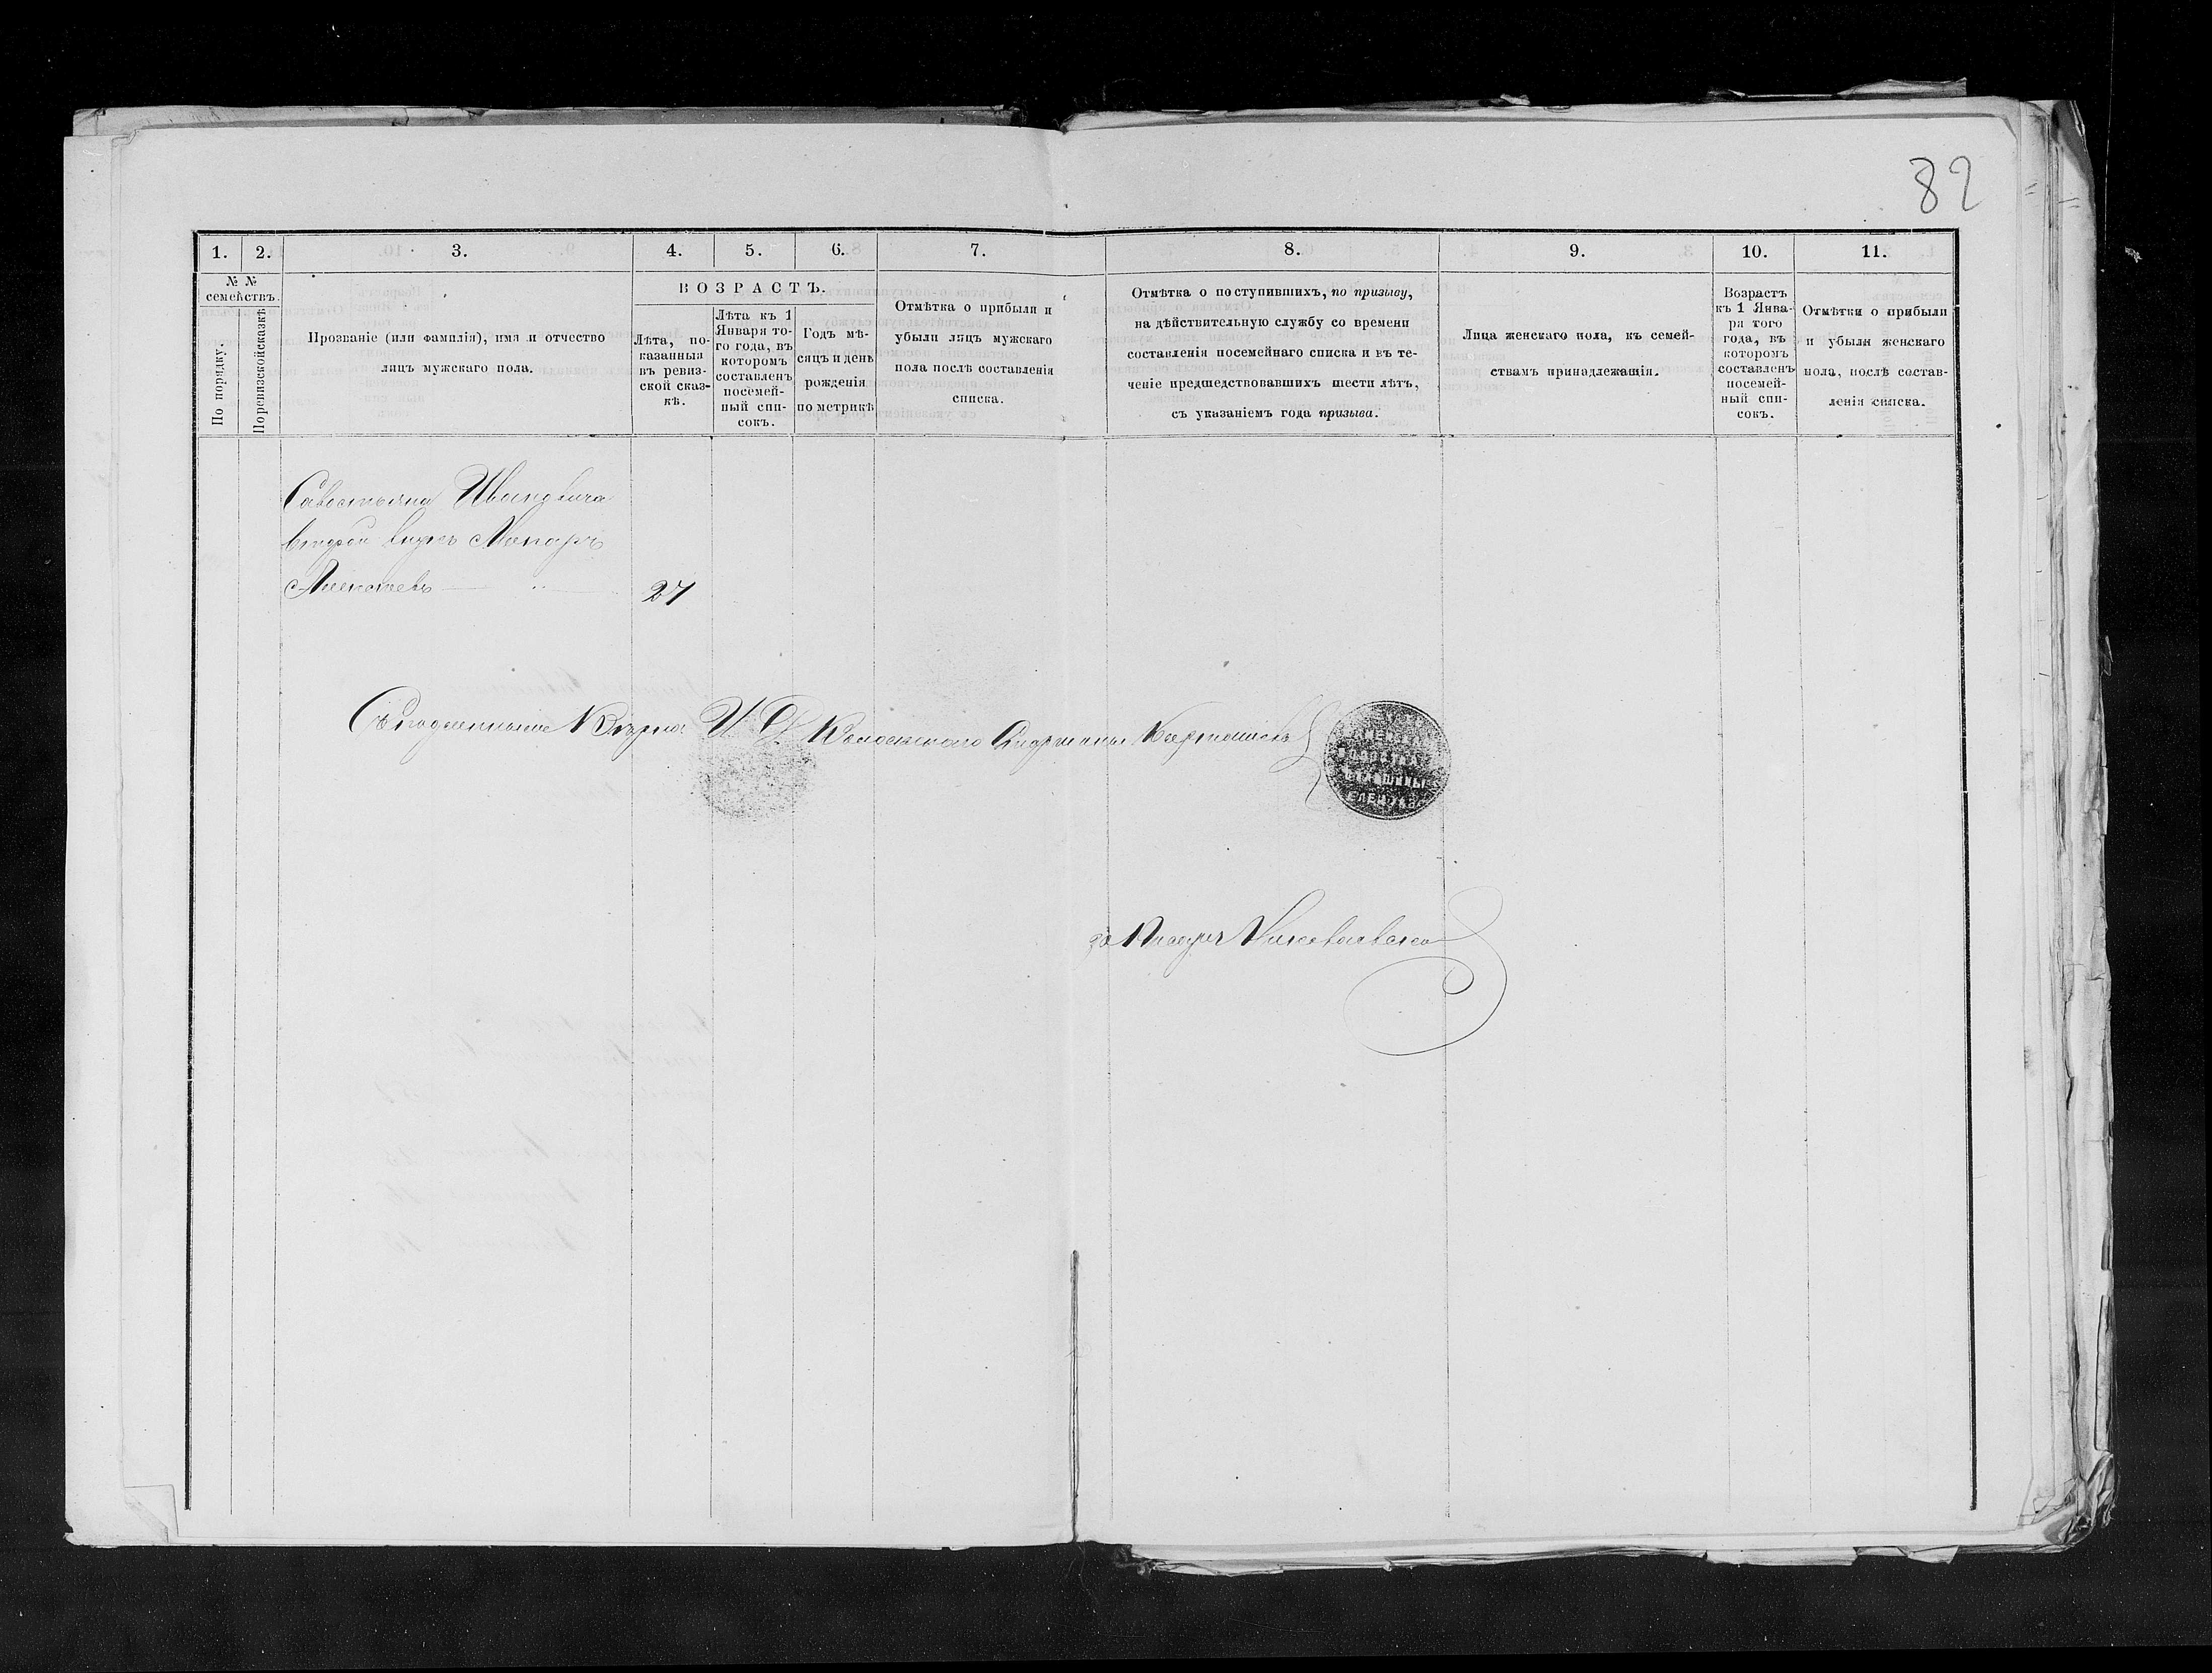 82
1. 2. 3. 4. 5. 6. 7. 8. 9. 10. 11.
№ №
семействъ.
По порядку.
По ревизской сказкѣ
Прозваніе (или фамилія), имя и отчество
лицъ мужскаго пола.
ВОЗРАСТЪ.
Лѣта, по-
казанныя
въ ревиз-
ской сказ-
кѣ.
Лѣта къ 1
Января то-
го года, въ
которомъ
составленъ
посемей-
ный спи-
сокъ.
Годъ мѣ-
сяцъ и день
рожденія
по метрикѣ
Отмѣтка о прибыли и
убыли лицъ мужскаго
пола послѣ составленія
списка.
Отмѣтка о поступившихъ, по призыву,
на дѣйствительную службу со времени
составленія посемейнаго списка и въ те-
ченіе предшедствовавшихъ шести лѣтъ,
съ указаніемъ года призыва.
Лица женскаго пола, къ семей-
ствамъ принадлежащія.
Возрастъ
къ 1 Янва-
ря того
года, въ
которомъ
составленъ
посемей-
ный спи-
сокъ.
Отмѣтки о прибыли
и убыли женскаго
пола, послѣ состав-
ленія списка.
Савостьяна Ивановича
второй внукъ Макаръ
Алексѣевъ 27
Съ подлиннымъ Вѣрно: И. Д. Волостнаго Старшины
ВОЛОСТНА
СТАРШИНЫ
за Писаря